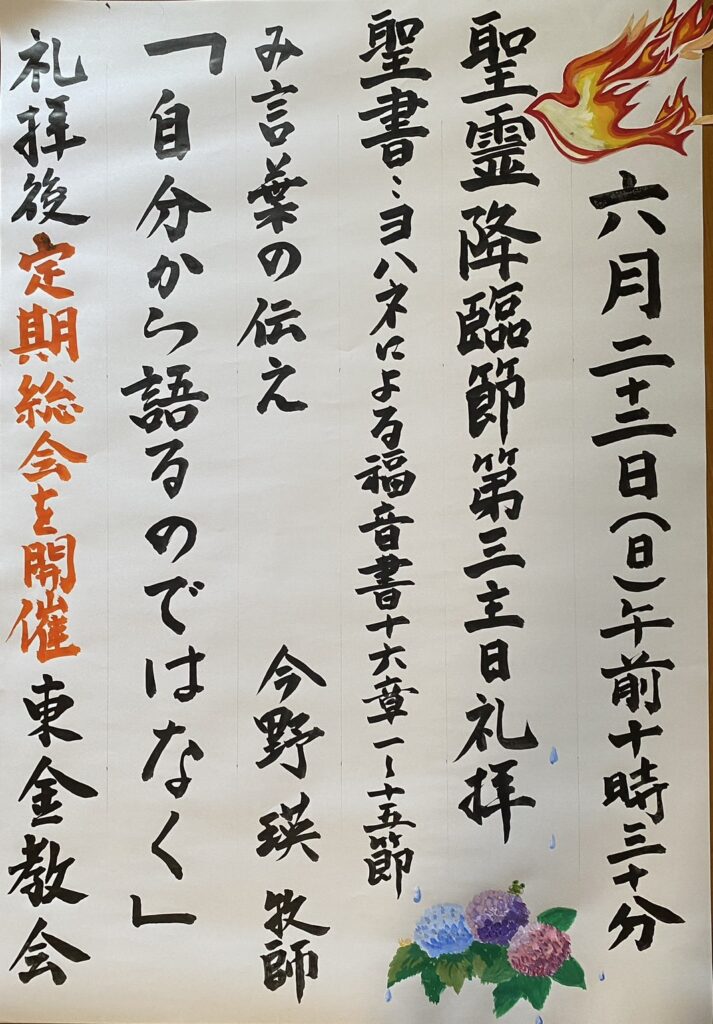 六月二十二日(日)午前十時三十分
聖霊降臨節第三主日礼拝
聖書：ヨハネによる福音書十六章一〜十五節
み言葉の伝え　今野　瑛　牧師
「自分から語るのではなく」
礼拝後定期総会を開催　東金教会